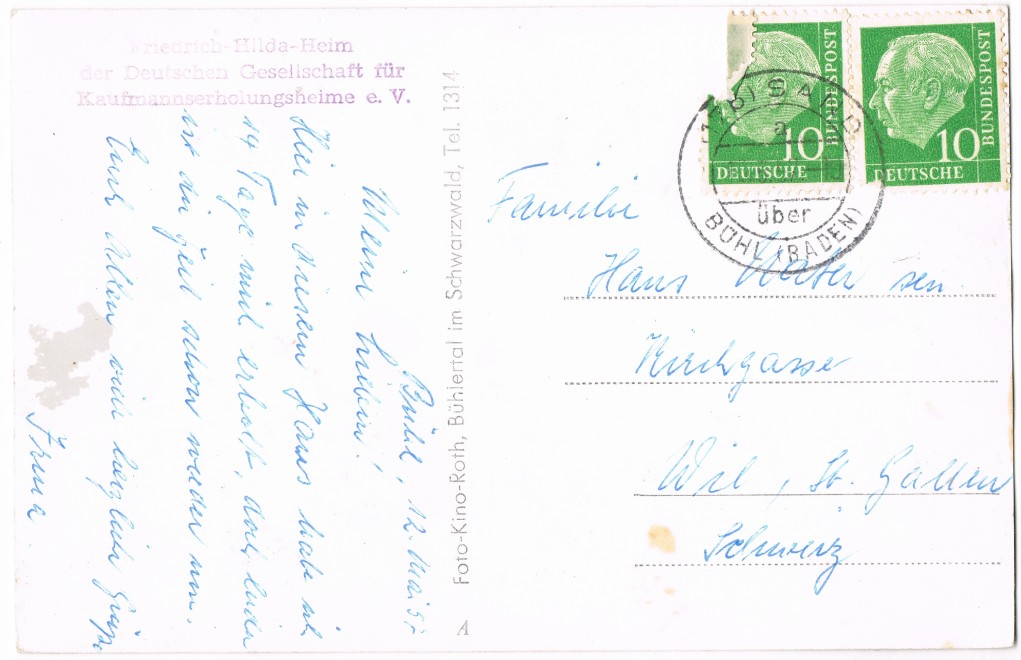 Friedrich-Hilda-Heim
der Deutschen Gesellschaft für
Kaufmannserholungsheime e. V.
Bühl, 12. Mai 57
Meine Lieben!
Hier in diesem Haus habe ich
14 Tage mich erholt, doch leider
ist die Zeit schon wieder um.
Euch Allen viele herzliche Grüße
Irma
Foto-Kino-Roth, Bühlertal im Schwarzwald, Tel. 1314
A
10
DEUTSCHE
BUNDESPOST
10
DEUTSCHE
BUNDESPOST
(17b) SAND
a
über
BÜHL (BADEN)
Familie
Hans Weber sen.
Kirchgasse
Wil, St. Gallen
Schweiz